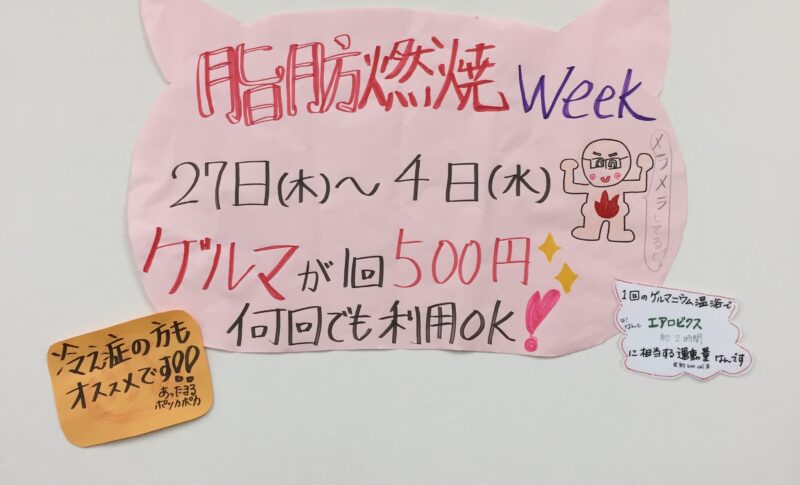 脂肪燃焼 Week
27日(木)〜4日(水)
メラメラしてるぜ
ゲルマが1回500円
何回でも利用OK!
冷え症の方も
オススメです!!
あったまる
ポッカポカ
1回のゲルマニウム温浴で
なんと エアロビクス
約2時間
に相当する運動量なんです